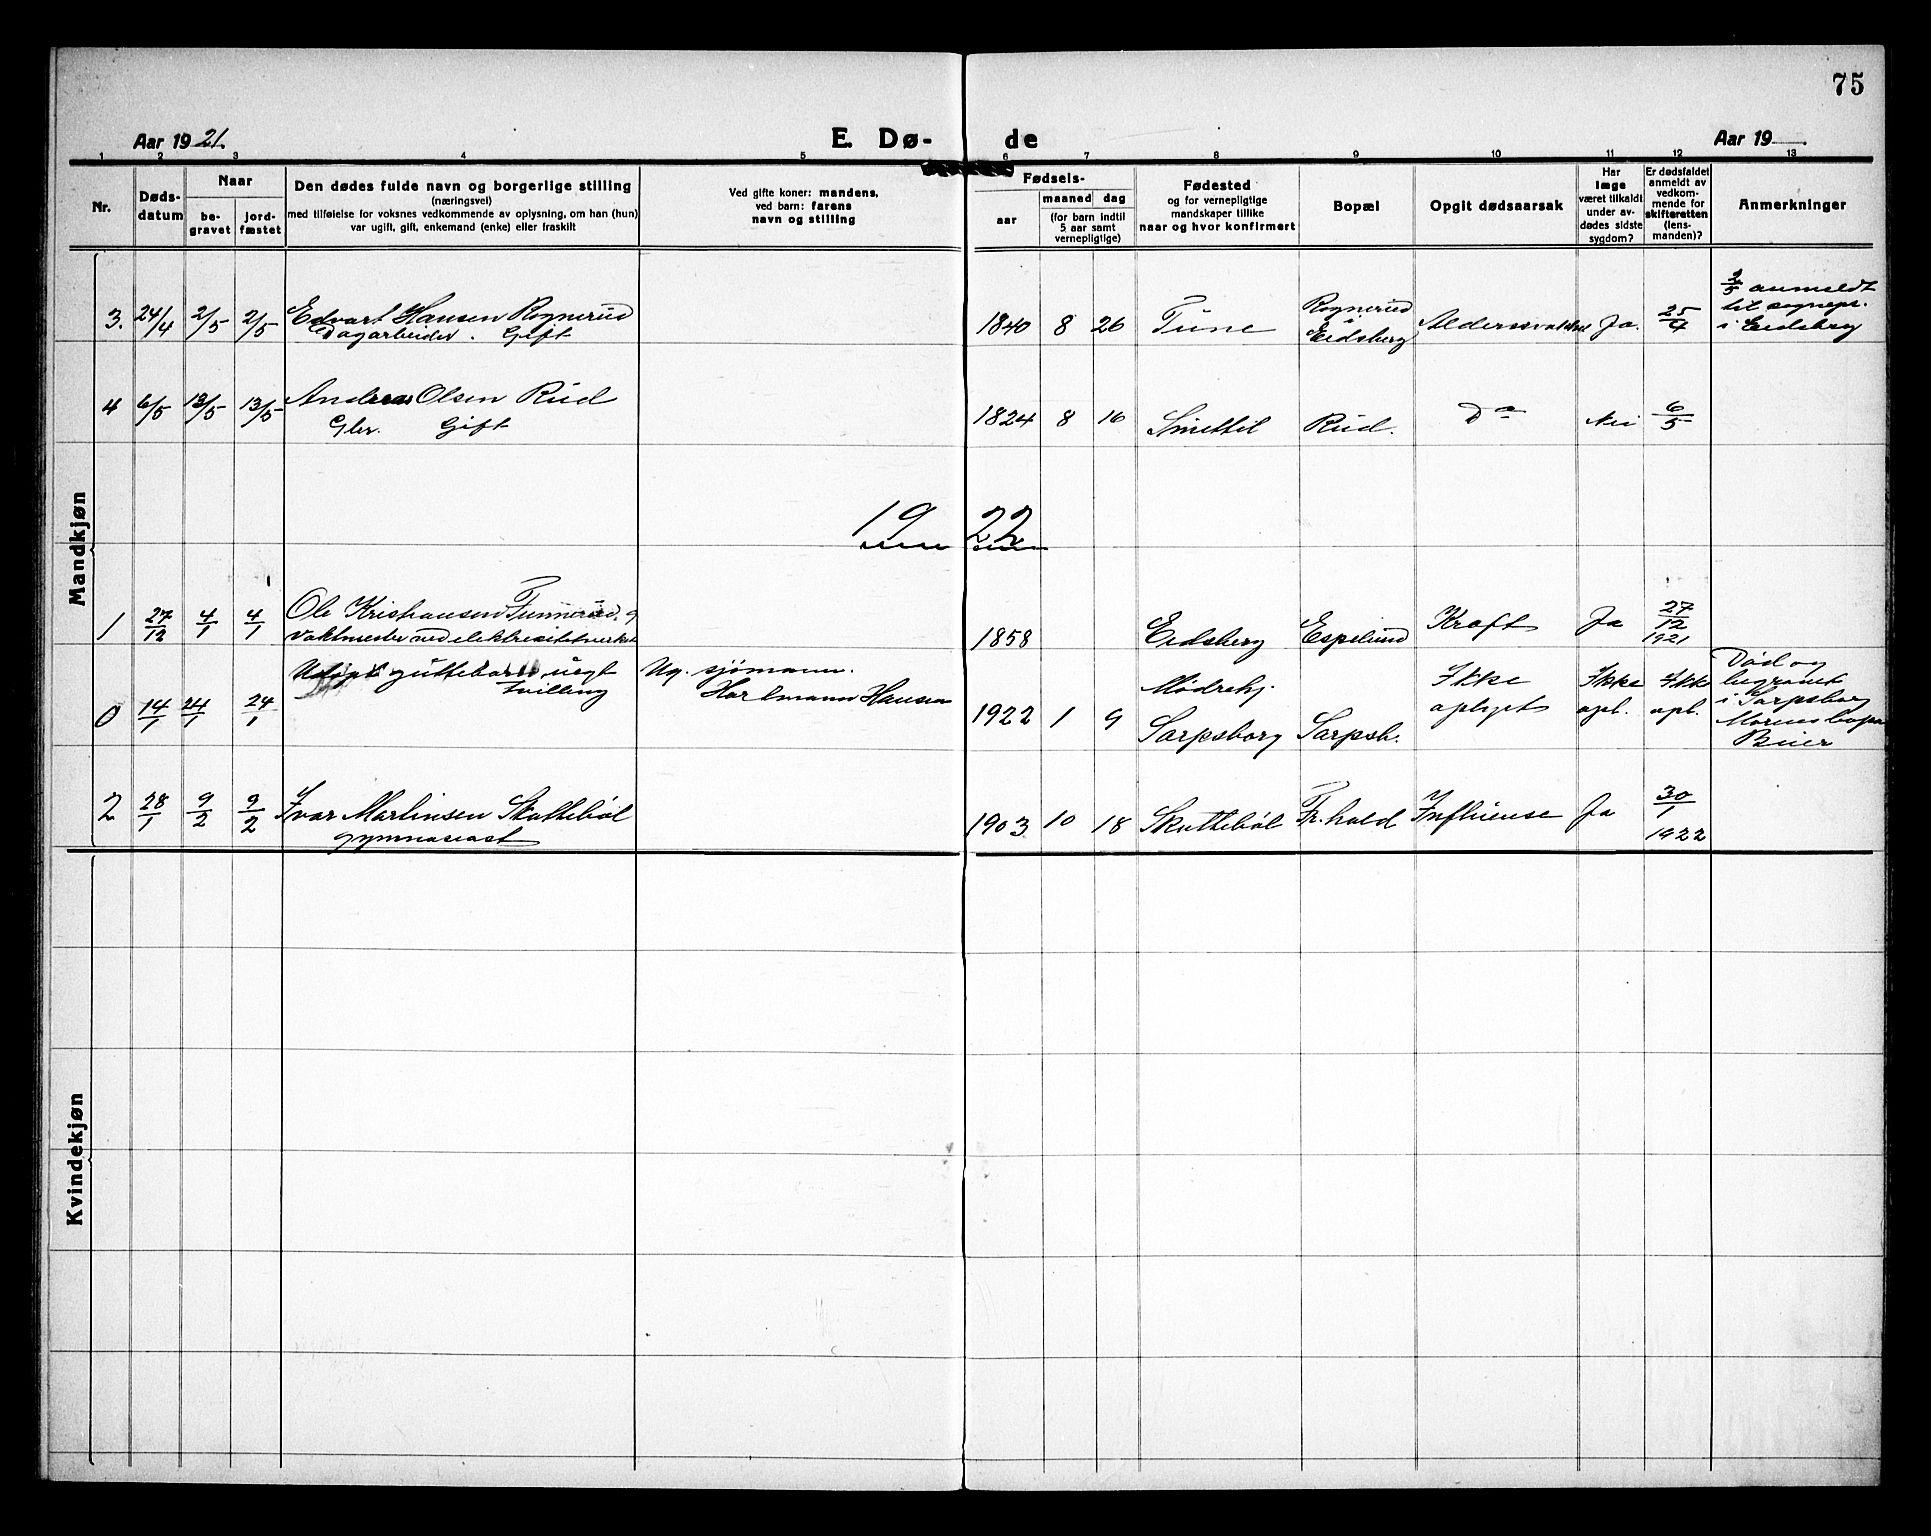 75
Aar 1921.
E. Dø-
de
Aar 19
1 2 3 4 5 6 7 8 9 10 11 12 13
Nr.
Døds-
datum
Naar
be-
gravet
jord-
fæstet
Den dødes fulde navn og borgerlige stilling
(næringsvei)
med tilføielse for voksnes vedkommende av oplysning, om han (hun)
var ugift, gift, enkemand (enke) eller fraskilt
Ved gifte koner: mandens,
ved barn: farens
navn og stilling
Fødsels-
aar
maaned dag
(for barn indtil
5 aar samt
vernepligtige)
Fødested
og for vernepligtige
mandskaper tillike
naar og hvor konfirmert
Bopæl
Opgit dødsaarsak
Har
læge
været tilkaldt
under av-
dødes sidste
sygdom?
Er dødsfaldet
anmeldt av
vedkom-
mende for
skifteretten
(lens-
manden)?
Anmerkninger
Mandkjøn
3. 24/4 2/5 2/5 Edvart Hansen Rognerud
Dagarbeider. Gift
1840 8 26 Tune Rognerud
i
Eidsberg
Ja. 25/4
2/5 anmeldt
til sognepr.
i Eidsberg
4 6/5 13/5 13/5 Andreas Olsen Rud
Gbr. Gift
1824 8 16 Smettil Rud. Do Nei 6/5
1922
1 27/12 4/1 4/1 Ole Kristiansen
Vaktmester ved elektricitetsverket
1858 Eidsberg Espelund Kræft Ja 27/12
1921
0 14/1 24/1 24/1 Udøpt guttebarn uegt
tvilling
Ug. sjømann.
Hartmann Hansen
1922 1 9 Mødrehj.
Sarpsborg Sarpsb.
Ikke
oplyst
Ikke
opl.
Ikke
opl.
Død og
begravet
i Sarpsborg
2 28/1 9/2 9/2 Ivar Martinsen Skottebøl
gymnasiast
1903 10 18 Skottebøl Fr.hald Influense Ja 30/1
1922
Kvindekjøn